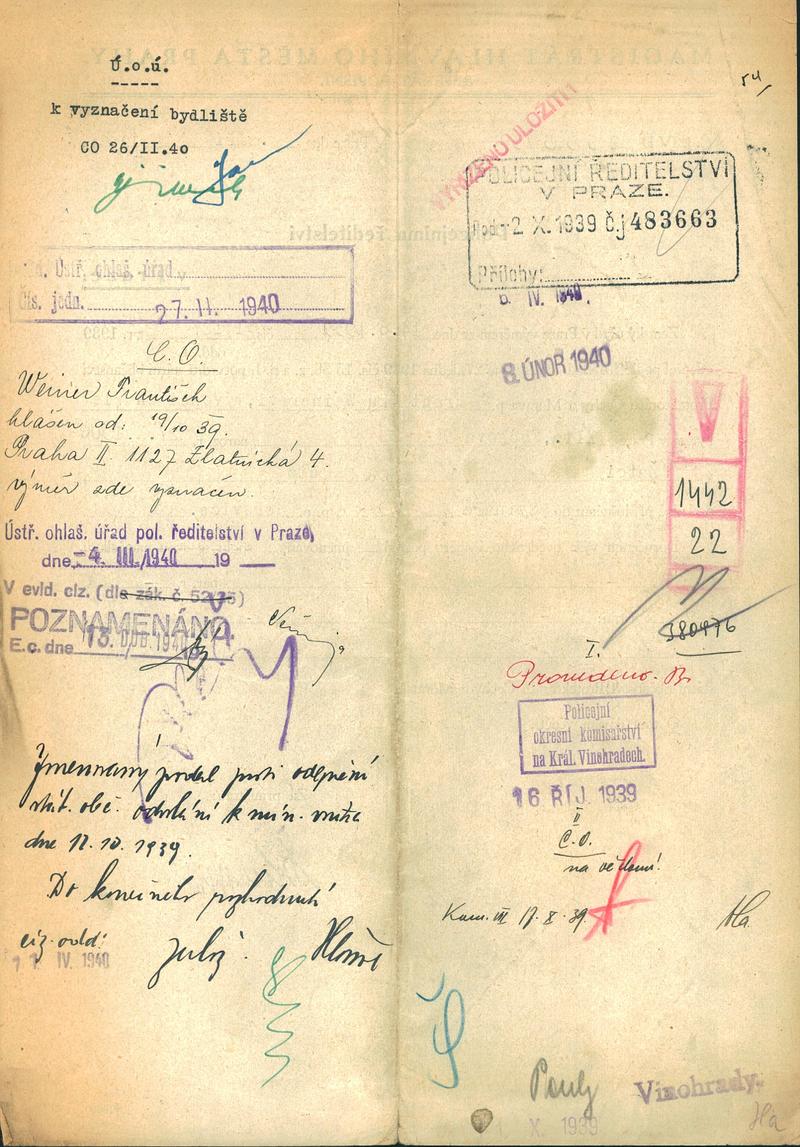 Ú.o.ú.
k vyznačení bydliště
CO 26/II.40
Ústř. ohlaš. úřad
čís. jedn. 27. II. 1940
C. O.
Weiner František
hlášen od: 19/10 39.
Praha II. 1127 Zlatnická 4.
výměr zde vyznačen.
Ústř. ohlaš. úřad pol. ředitelství v Praze,
dne -4. III. 1940 19
V evid. ciz. (dle zák. č. 52/35)
POZNAMENÁNO
E.c. dne 13. DUB. 1940
Jmenovaný podal proti odepření
stát. obč. odvolání k min. vnitra
dne 11. 10. 1939.
Do konečného rozhodnutí
IV. 1940
54
VYŘÍZENO ULOŽITI!
POLICEJNÍ ŘEDITELSTVÍ
V PRAZE.
Pod. -2. X. 1939 č.j 483663
Přílohy:
6. IV. 1940.
8. ÚNOR 1940
V
1442
22
380476
I.
Provedeno.
Policejní
okresní komisařství
na Král. Vinohradech.
16 ŘÍJ. 1939
II
Č.O.
na vědomí!
Kom. III 17. X. 39.
Vinohrady.
X 1939